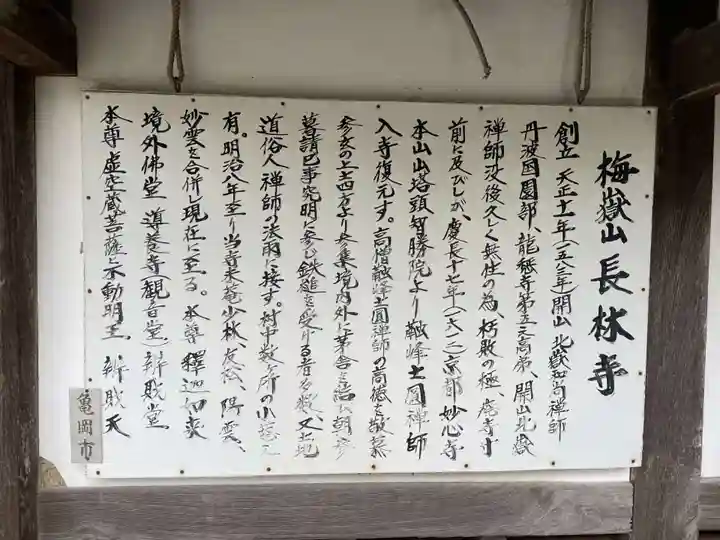 梅嶽山長林寺
創立 天正十一年(一五八三年)開山 北嶽和尚禅師
丹波国園部、龍穏寺第五之高弟、開山北嶽
禅師没後久しく無住の為、朽敗の極、廃寺寸
前に及びしが、慶長十七年(一六一二)京都 妙心寺
本山山塔頭智勝院より 士圓禅師
入寺復元す。高僧 士圓禅師の高徳を敬慕
上士四方より参集境内外に茅舎を 朝参
暮請己事究明に参じ鉄鎚を受ける者多数、又土地
道俗人禅師の法雨に接す。村中数ヶ所の小庵
有。明治八年至り当寺末庵少林、友松、陽雲、
妙雲を合併し現在に至る。本尊 釋迦如来
境外佛堂 導養寺(観音堂、辨財堂
本尊 虚空蔵菩薩 不動明王、辨財天
亀岡市